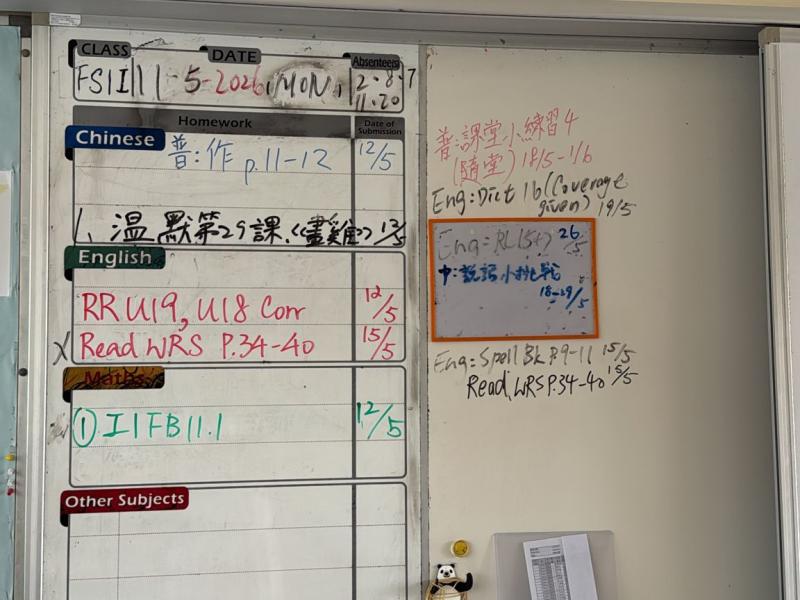 CLASS DATE Absentees
11-5-2026, MON, 2.8.7
11.20
Homework Date of Submission
Chinese
普:作 p.11-12 12/5
1. 温默第29課《畫雞》12/5
English
RR U19, U18 Corr 12/5
X Read WRS P.34-40 15/5
Maths
① I1FB11.1 12/5
Other Subjects
普:課堂小練習4
(隨堂) 18/5-1/6
Eng: Dict 16 (Coverage
given) 19/5
26/5
中:説話小挑戰
18-29/5
Eng: Spell Bk P.9-11 15/5
Read WRS P.34-40 15/5